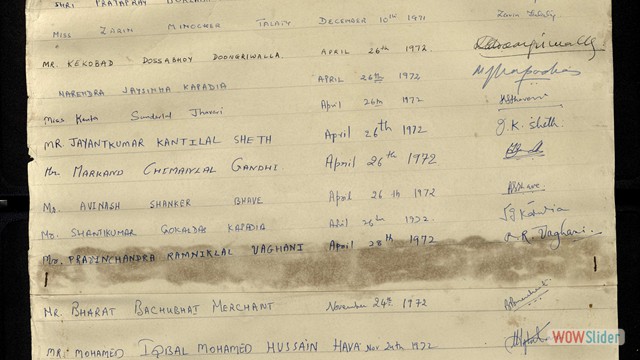 SHRI PRATAPRAY
MISS ZARIN MINOCHER TALATY DECEMBER 10th 1971 Zarin Talaty.
MR. KEKOBAD DOSSABHOY DOONGRIWALLA. APRIL 26th 1972 Doongriwalla
NARENDRA JAYSINHA KAPADIA APRIL 26th 1972
Miss Sunderlal Jhaveri April 26th 1972
MR. JAYANTKUMAR KANTILAL SHETH April 26th 1972 J.K. Sheth.
Mr. MARKAND CHIMANLAL GANDHI. April 26th 1972
Mr. AVINASH SHANKER BHAVE April 26th 1972
Mr. SHANTIKUMAR GOKALDAS KAPADIA April 26th 1972
Mr. PRAVINCHANDRA RAMNIKLAL VAGHANI April 28th 1972 R. Vaghani.
MR. BHARAT BACHUBHAI MERCHANT November 24th 1972
MR. MOHAMED IQBAL MOHAMED HUSSAIN HAVA Nov 24th 1972
WOWSlider